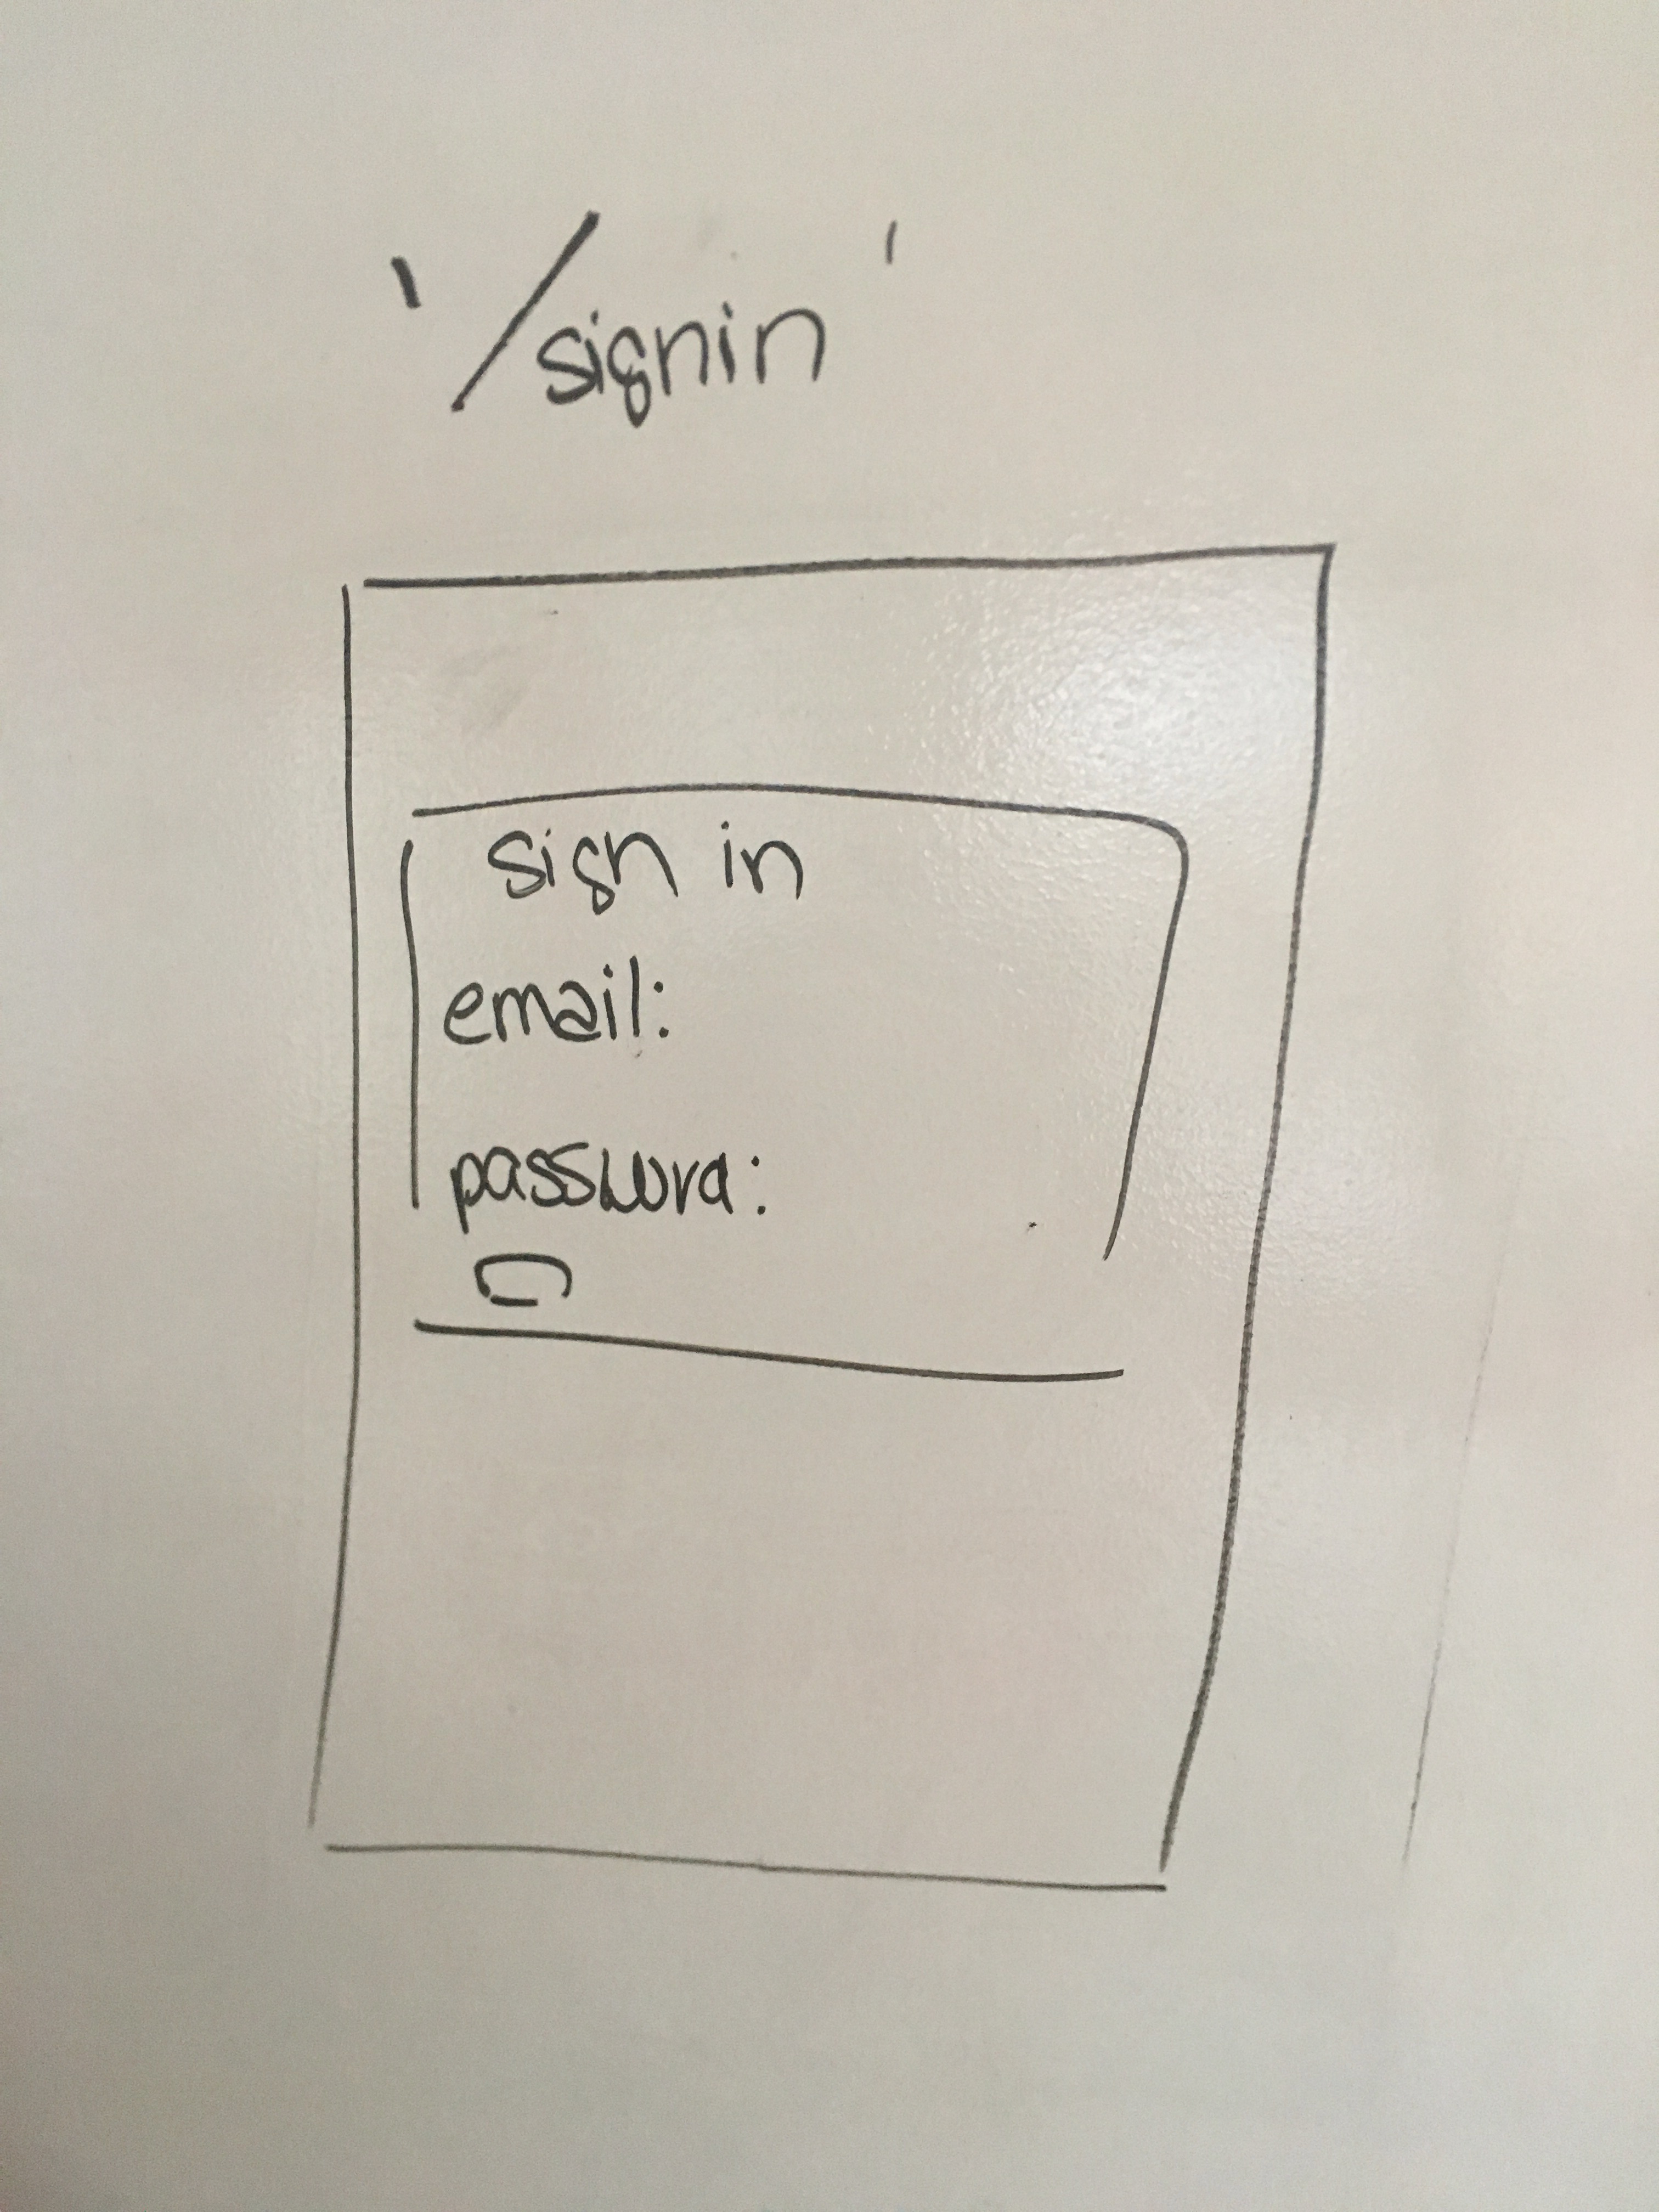 '/signin'
sign in
email:
password: